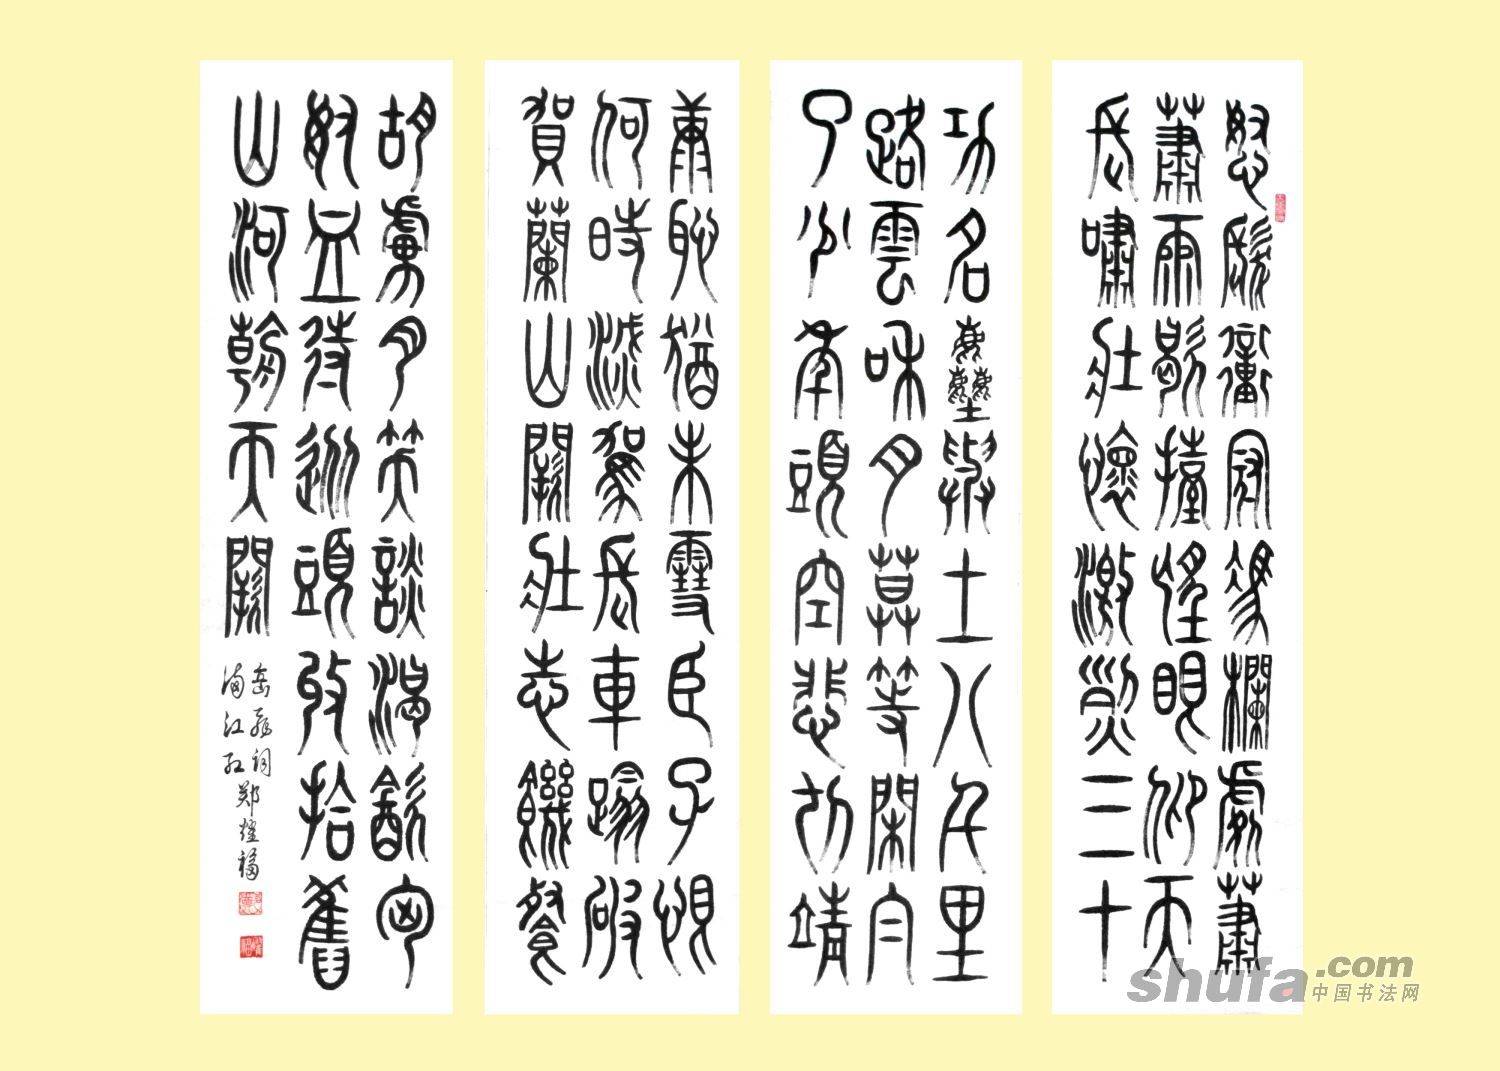 怒髮衝冠憑欄處蕭
蕭雨歇擡望眼仰天
長嘯壯懷激烈三十
功名塵與土八千里
路雲和月莫等閒白
了少年頭空悲切靖
康恥猶未雪臣子恨
何時滅駕長車踏破
賀蘭山闕壯志飢餐
胡虜肉笑談渴飲匈
奴血待從頭收拾舊
山河朝天闕
岳飛詞
滿江红郑耀福
shufa.com
中国书法网